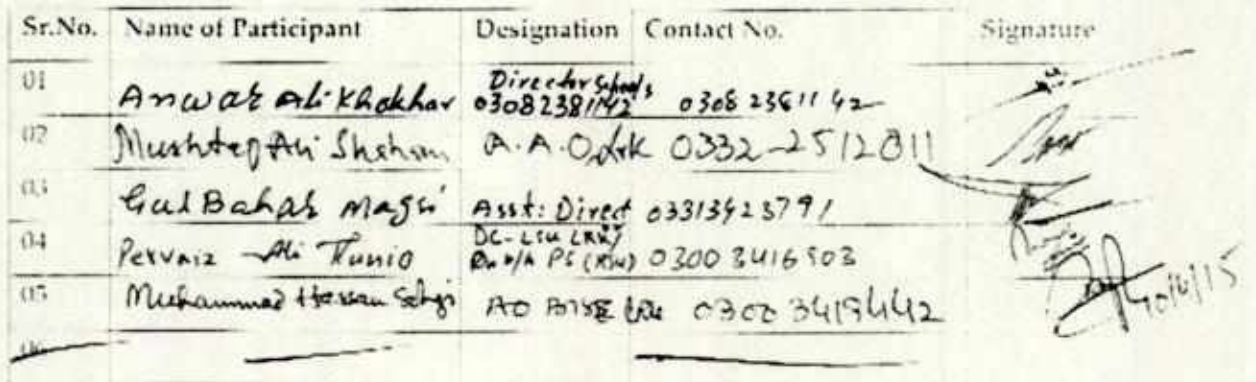 Sr.No. Name of Participant Designation Contact No. Signature
01 Anwar Ali Khokhar Director Schools 03082381142 0308 2381142
02 Mushtaq Ali A.A.O 0332-2512011
03 Gul Bahar Magsi Asst: Direct 03313423791
04 Pervaiz Ali Tunio 0300 3416903
05 Muhammad Hassan AO BISE 0300 3419442
06